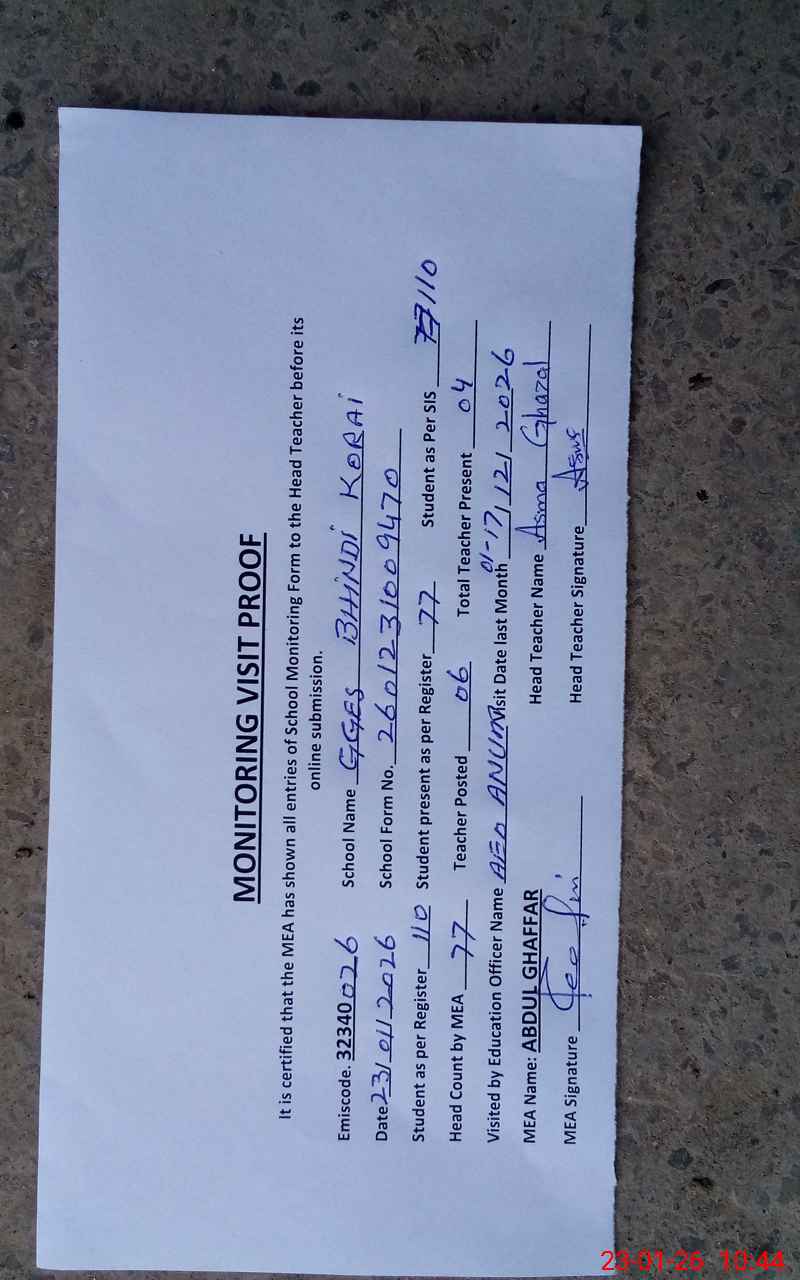 MONITORING VISIT PROOF
It is certified that the MEA has shown all entries of School Monitoring Form to the Head Teacher before its
online submission.
Emiscode. 32340026 School Name GGES BHINDI KORAI
Date 23/01/2026 School Form No. 2601231009470
Student as per Register 110 Student present as per Register 77 Student as Per SIS 77 110
Head Count by MEA 77 Teacher Posted 06 Total Teacher Present 04
Visited by Education Officer Name AEO ANUM Visit Date last Month 01-17/12/2026
MEA Name: ABDUL GHAFFAR Head Teacher Name Asma Ghazal
MEA Signature Head Teacher Signature Asma
23-01-26 10:44